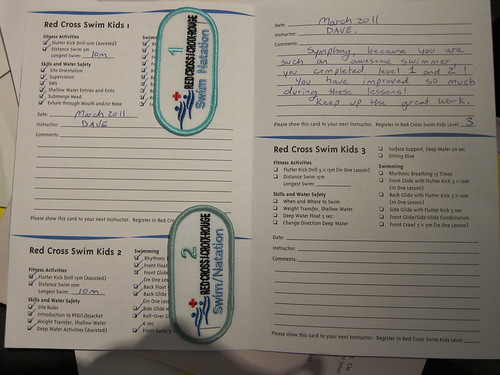 Red Cross Swim Kids 1
Fitness Activities
Flutter Kick 10m (Assisted)
Distance Swim 5m
Longest Swim: 10m
Skills and Water Safety
Site Orientation
Supervision
EMS
Shallow Water Entries and Exits
Submerge Head
Exhale Through Mouth and/or Nose
Date: March 2011
Instructor: DAVE
Comments:
Please show this card to your next Instructor. Register in Red
1
RED CROSS CROIX-ROUGE
Swim Natation
Red Cross Swim Kids 2
Fitness Activities
Flutter Kick Drill 15m (Assisted)
Distance Swim 10m
Longest Swim: 10m
Skills and Water Safety
Site Rules
Introduction to PFD/Lifejacket
Weight Transfer, Shallow Water
Deep Water Activities (Assisted)
Swimming
Rhythmic
Front Float
Front Glide
(in One Lesson)
Back Float
Back Glide
(in One
Side Glide
Roll-Over
2
RED CROSS CROIX-ROUGE
Swim/Natation
Date: March 2011
Instructor: DAVE.
Comments:
Symphony, because you are
such an awesome swimmer
you completed level 1 and 2!
You have improved so much
during these lessons!
Keep up the great work.
Please show this card to your next Instructor. Register in Red Cross Swim Kids Level 3
Red Cross Swim Kids 3
Fitness Activities
Flutter Kick Drill 3 x 15m (in One Lesson)
Distance Swim 15m
Longest Swim:
Skills and Water Safety
When and Where to Swim
Weight Transfer, Shallow Water
Deep Water Float 5 sec
Change Direction Deep Water
Surface Support, Deep Water 20 sec
Sitting Dive
Swimming
Rhythmic Breathing 15 Times
Front Glide with Flutter Kick 3 x 10m
(in One Lesson)
Back Glide with Flutter Kick 3 x 10m
(in One Lesson)
Side Glide with Flutter Kick 5 sec
Front Glide/Side Glide Combination
Front Crawl 3 x 5m (in One Lesson)
Date:
Instructor:
Comments:
Please show this card to your next Instructor. Register in Red Cross Swim Kids Level